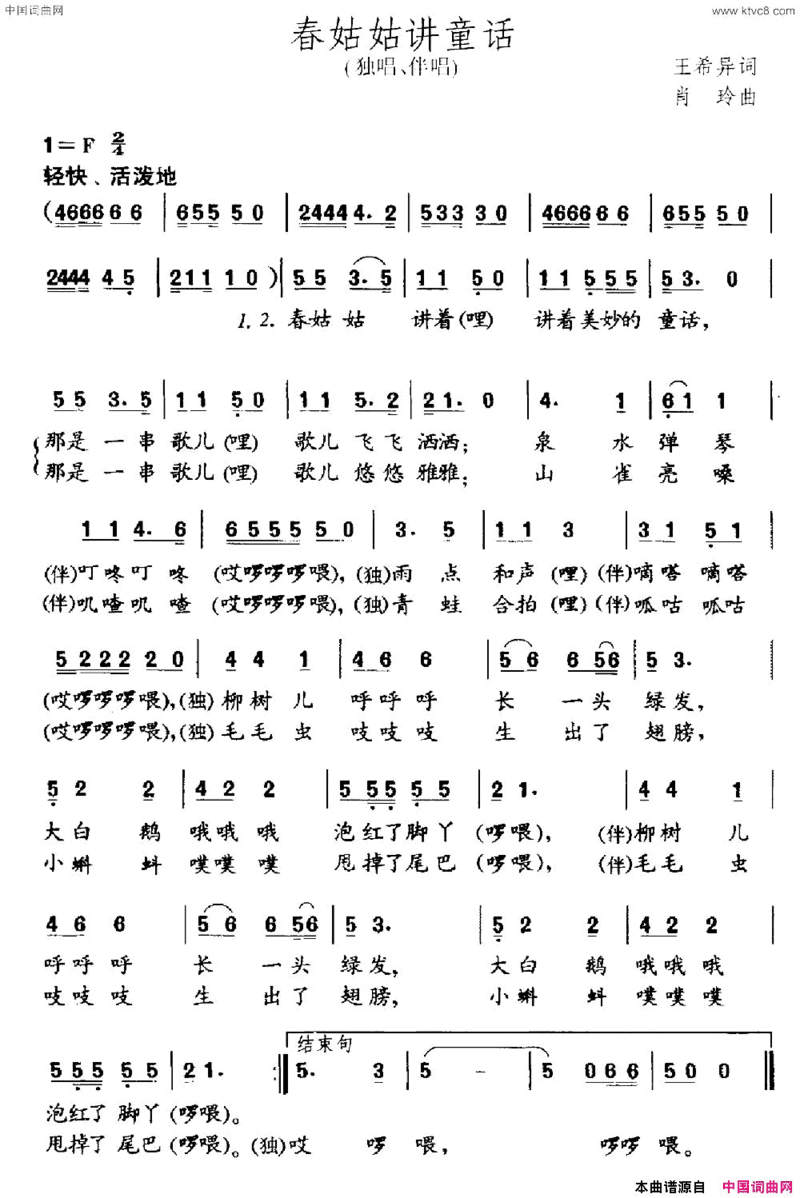 中国词曲网
www.ktvc8.com
春姑姑讲童话
(独唱、伴唱)
王希异词
肖 玲曲
1=F 2/4
轻快、活泼地
(46666 6 | 655 5 0 | 2444 4. 2 | 533 3 0 | 46666 6 | 655 5 0 |
2444 4 5 | 211 1 0) | 5 5 3. 5 | 1 1 5 0 | 1 1 5 5 5 | 5 3. 0 |
1. 2. 春姑 姑 讲着(哩) 讲着美妙的 童话,
5 5 3. 5 | 1 1 5 0 | 1 1 5. 2 | 2 1. 0 | 4. 1 | 6 1 1 |
那是 一 串 歌儿(哩) 歌儿 飞飞 洒洒; 泉 水 弹 琴
那是 一 串 歌儿(哩) 歌儿 悠悠 雅雅; 山 雀 亮 嗓
1 1 4. 6 | 6 5 5 5 5 0 | 3. 5 | 1 1 3 | 3 1 5 1 |
(伴)叮咚叮 咚 (哎啰啰啰喂),(独)雨 点 和声(哩)(伴)嘀嗒 嘀嗒
(伴)叽喳叽 喳 (哎啰啰啰喂),(独)青 蛙 合拍(哩)(伴)呱咕 呱咕
5 2 2 2 2 0 | 4 4 1 | 4 6 6 | 5 6 6 56 | 5 3. |
(哎啰啰啰喂),(独)柳树 儿 呼呼 呼 长 一头 绿发,
(哎啰啰啰喂),(独)毛毛 虫 吱吱 吱 生 出了 翅膀,
5 2 2 | 4 2 2 | 5 5 5 5 5 | 2 1. | 4 4 1 |
大白 鹅 哦哦 哦 泡红了脚丫 (啰喂), (伴)柳树 儿
小蝌 蚪 噗噗 噗 甩掉了尾巴 (啰喂), (伴)毛毛 虫
4 6 6 | 5 6 6 56 | 5 3. | 5 2 2 | 4 2 2 |
呼呼 呼 长 一头 绿发, 大白 鹅 哦哦 哦
吱吱 吱 生 出了 翅膀, 小蝌 蚪 噗噗 噗
结束句
5 5 5 5 5 | 2 1. :| 5. 3 | 5 - | 5 0 6 6 | 5 0 0 |
泡红了 脚丫 (啰喂)。
甩掉了 尾巴 (啰喂)。(独)哎 啰 喂, 啰啰 喂。
本曲谱源自 中国词曲网